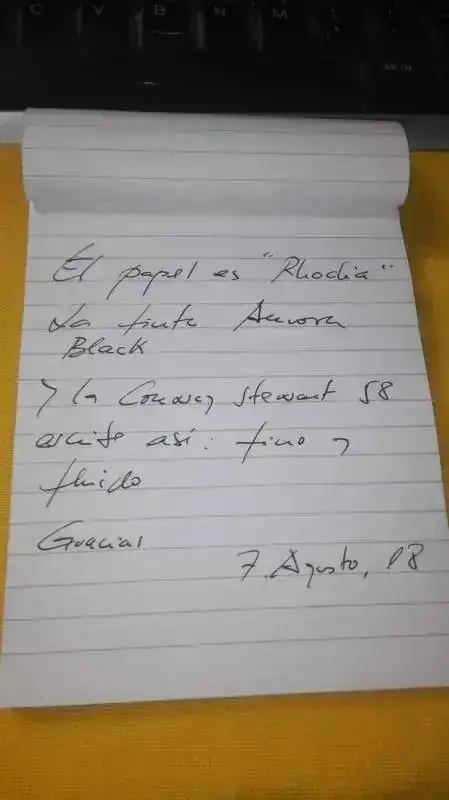 C V B N M
El papel es "Rhodia"
La tinta Aurora
Black
y la Conway Stewart 58
escribe así: fino y
fluido
Gracias
7. Agosto, 18